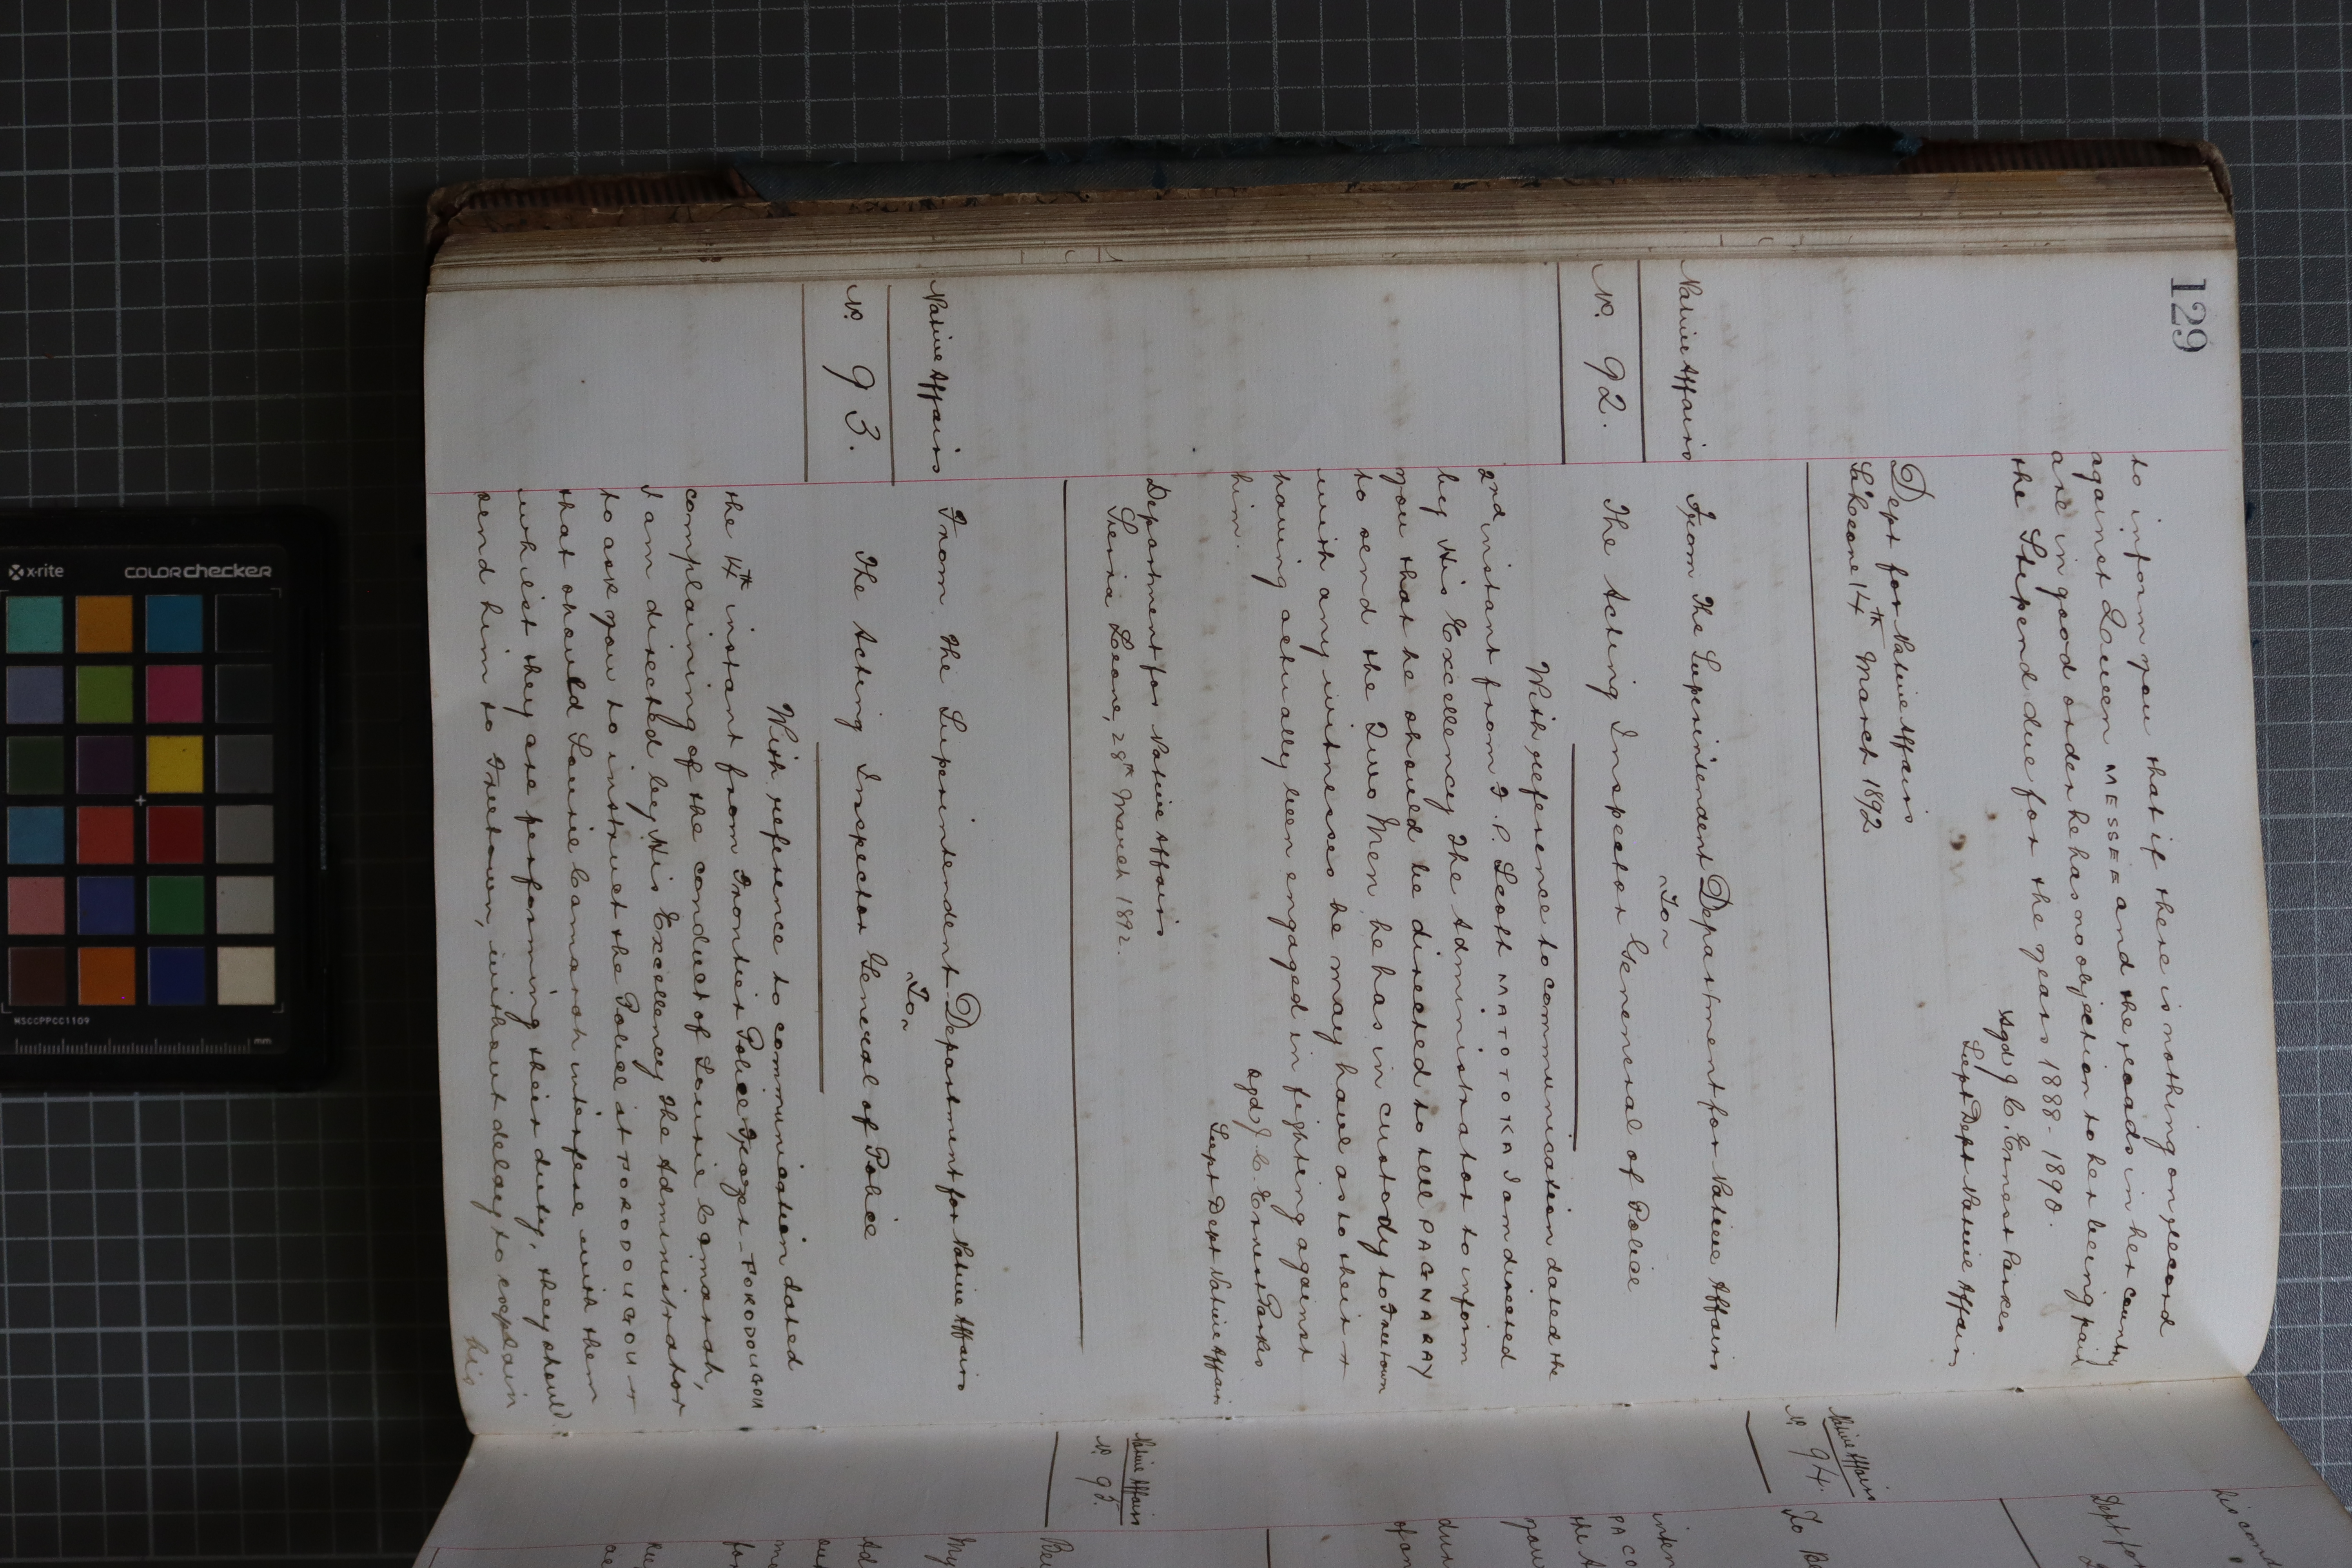 129
to inform you that if there is nothing on record
against Queen MESSEE and the roads in her country
are in good order he has no objection to her being paid
the Stipend due for the years 1888-1890.
sgd J. C. Ernest Parkes
Supt Dept Native Affairs
Dept for Native Affairs
S' Leone 14th March 1892
Native Affairs
No. 92.
From The Superintendent Department for Native Affairs
To
The Acting Inspector General of Police
With reference to communication dated the
2nd instant from I. P. Scott MATOTOKA I am directed
by His Excellency The Administrator to inform
you that he should be directed to tell PAGNARAY
to send the Two Men he has in custody to Freetown
with any witnesses he may have as to their
having actually been engaged in fighting against
him.
sgd J. C. Ernest Parkes
Supt Dept Native Affairs
Department for Native Affairs
Sierra Leone, 28th March 1892.
Native Affairs
No. 93.
From The Superintendent Department for Native Affairs
To
The Acting Inspector General of Police
With reference to communication dated
the 14th instant from Frontier Police FOKODOUGOU
complaining of the conduct of Sourie Camarah,
I am directed by His Excellency The Administrator
to ask you to instruct the Police at FOKODOUGOU
that should Sourie Camarah interfere with them
whilst they are performing their duty, they should
send him to Freetown, without delay to explain
his
his
Dept for
Native Affairs
No. 94.
To
PA
you
Native Affairs
No. 95.
My
x-rite
colorchecker
MSCCPPCC1109
mm